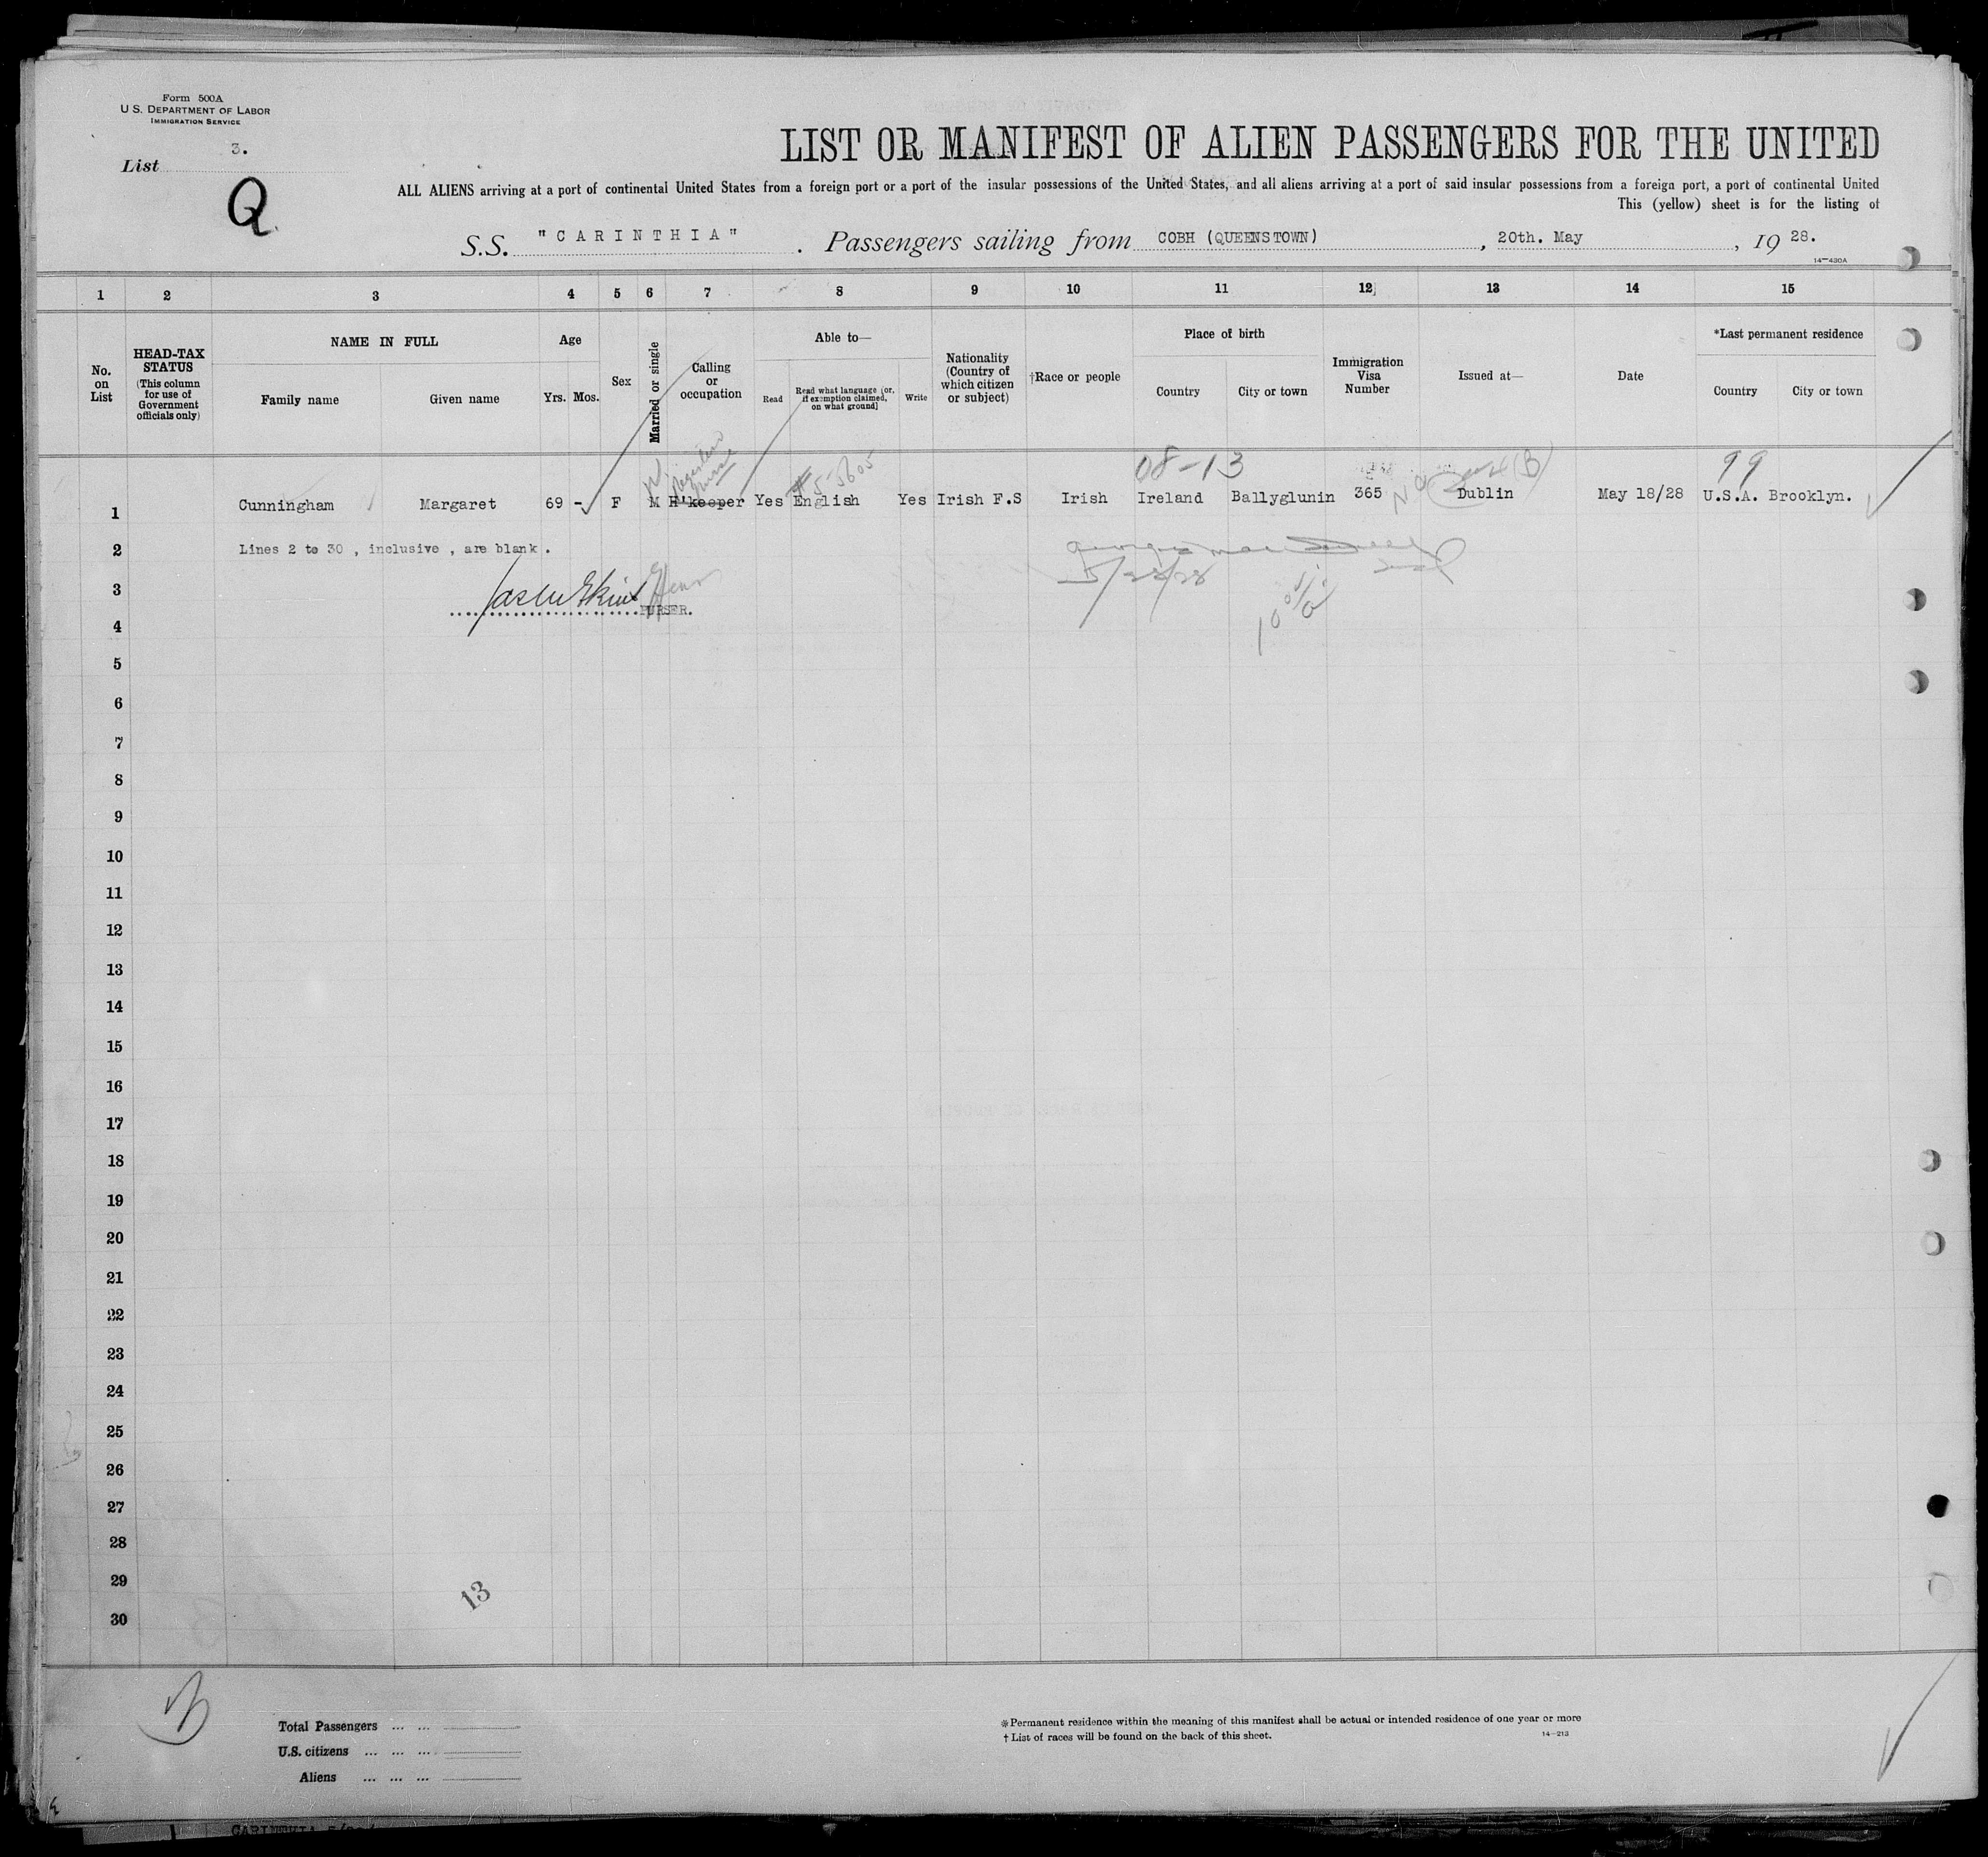 Form 500A
U.S. DEPARTMENT OF LABOR
IMMIGRATION SERVICE
List 3.
Q
LIST OR MANIFEST OF ALIEN PASSENGERS FOR THE UNITED
ALL ALIENS arriving at a port of continental United States from a foreign port or a port of the insular possessions of the United States, and all aliens arriving at a port of said insular possessions from a foreign port, a port of continental United
This (yellow) sheet is for the listing of
S.S. "CARINTHIA" . Passengers sailing from COBH (QUEENSTOWN) , 20th. May , 19 28.
14-430A
1 2 3 4 5 6 7 8 9 10 11 12 13 14 15
No. on List
HEAD-TAX STATUS (This column for use of Government officials only)
NAME IN FULL
Family name Given name
Age
Yrs. Mos.
Sex
Married or single
Calling or occupation
Able to—
Read Read what language [or, if exemption claimed, on what ground] Write
Nationality (Country of which citizen or subject)
†Race or people
Place of birth
Country City or town
Immigration Visa Number
Issued at—
Date
*Last permanent residence
Country City or town
Registered Nurse
08-13
99
1 Cunningham Margaret 69 - F M H'keeper Yes English Yes Irish F.S Irish Ireland Ballyglunin 365 Dublin May 18/28 U.S.A. Brooklyn.
2 Lines 2 to 30 , inclusive , are blank .
5/28/28
3
PURSER.
4
5
6
7
8
9
10
11
12
13
14
15
16
17
18
19
20
21
22
23
24
25
26
27
28
29
13
30
Total Passengers ... ...
U.S. citizens ... ... ...
Aliens ... ... ...
*Permanent residence within the meaning of this manifest shall be actual or intended residence of one year or more
† List of races will be found on the back of this sheet.
14-213